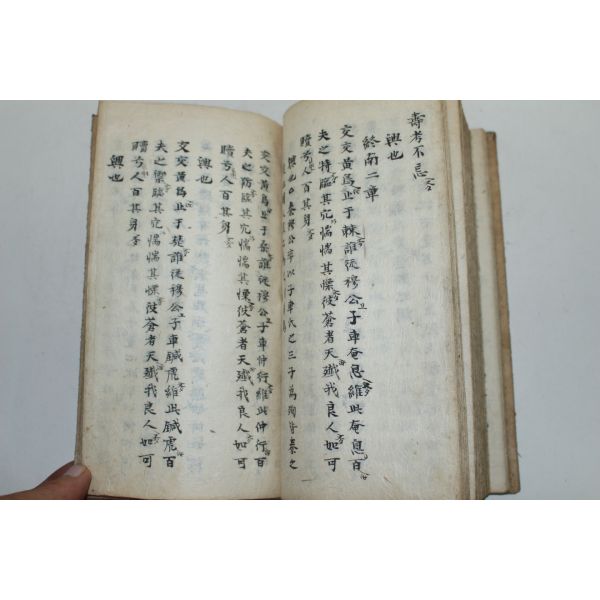 壽考不忘
興也
終南二章
交交黃鳥止于棘誰從穆公子車奄息維此奄息百
夫之特臨其穴惴惴其慄彼蒼者天殲我良人如可
贖兮人百其身
興也○秦穆公卒以子車氏之三子爲殉皆秦之
交交黃鳥止于桑誰從穆公子車仲行維此仲行百
夫之防臨其穴惴惴其慄彼蒼者天殲我良人如可
贖兮人百其身
興也
交交黃鳥止于楚誰從穆公子車鍼虎維此鍼虎百
夫之禦臨其穴惴惴其慄彼蒼者天殲我良人如可
贖兮人百其身
興也